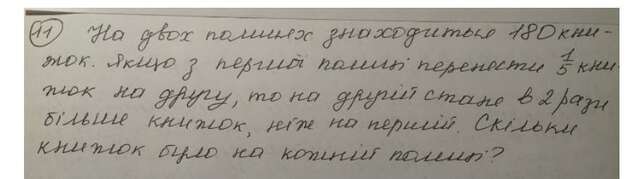 11 На двох полицях знаходиться 180 кни-
жок. Якщо з першої полиці перенести 1/5 кни-
жок на другу, то на другій стане в 2 рази
більше книжок, ніж на першій. Скільки
книжок було на кожній полиці?